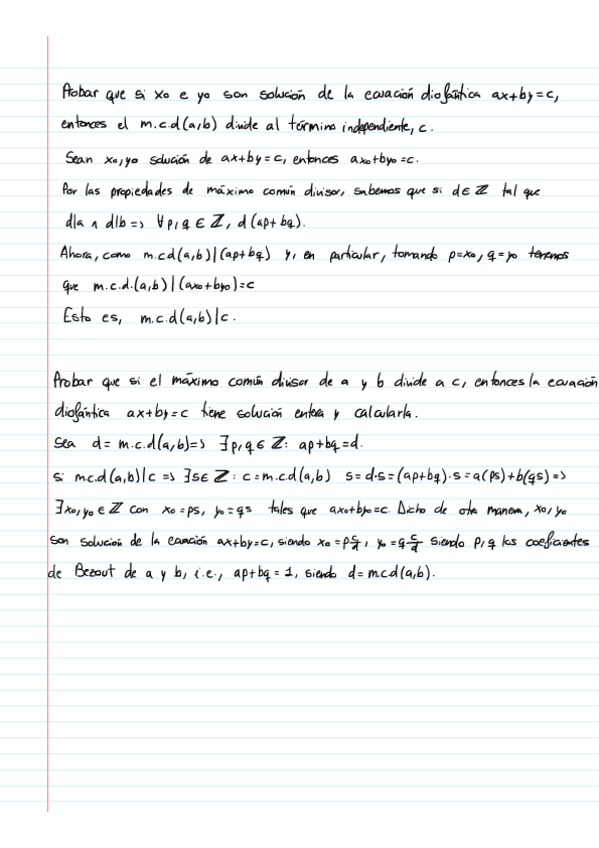 Probar que si xo e yo son solución de la ecuación diofántica ax+by=c,
entonces el m.c.d(a,b) divide al término independiente, c.
Sean xo, yo solución de ax+by=c, entonces axo+byo=c.
Por las propiedades de máximo común divisor, sabemos que si d∈ℤ tal que
d|a ∧ d|b => ∀p,q ∈ ℤ, d(ap+bq).
Ahora, como m.c.d(a,b)|(ap+bq) y, en particular, tomando p=xo, q=yo tenemos
que m.c.d.(a,b)|(axo+byo)=c
Esto es, m.c.d(a,b)|c.
Probar que si el máximo común divisor de a y b divide a c, entonces la ecuación
diofántica ax+by=c tiene solución entera y calcularla.
Sea d= m.c.d(a,b)=> ∃p,q ∈ ℤ: ap+bq=d.
si m.c.d(a,b)|c => ∃s∈ℤ: c=m.c.d(a,b) s=d·s=(ap+bq)·s=a(ps)+b(qs)=>
∃xo,yo∈ℤ con xo=ps, yo=qs tales que axo+byo=c. Dicho de otra manera, xo, yo
son solución de la ecuación ax+by=c, siendo xo=p c/d, yo=q c/d siendo p, q los coeficientes
de Bezout de a y b, i.e., ap+bq=1, siendo d=m.c.d(a,b).